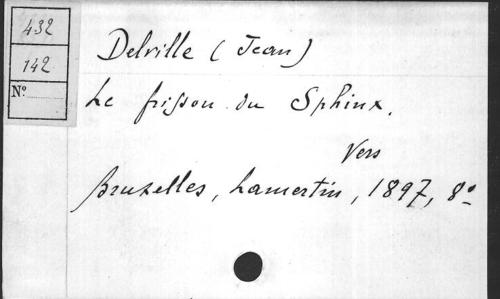 432
142
N°
Delville (Jean)
Le frisson du Sphinx.
Vers
Bruxelles, Lamertin, 1897, 8°